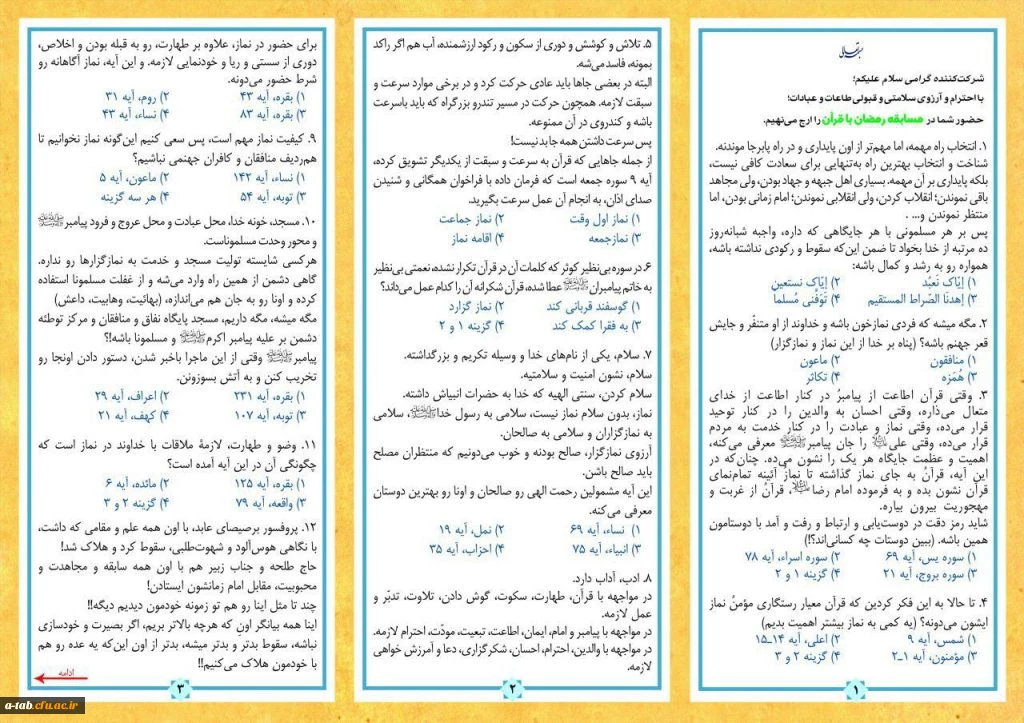 بسمه تعالی
شرکت‌کننده گرامی سلام علیکم؛
با احترام و آرزوی سلامتی و قبولی طاعات و عبادات؛
حضور شما در مسابقه رمضان با قرآن را ارج می‌نهیم.
۱. انتخاب راه مهمه، اما مهم‌تر از اون پایداری و در راه پابرجا موندنه.
شناخت و انتخاب بهترین راه به‌تنهایی برای سعادت کافی نیست،
بلکه پایداری بر آن مهمه. بسیاری اهل جبهه و جهاد بودن، ولی مجاهد
باقی نموندن؛ انقلاب کردن، ولی انقلابی نموندن؛ امام زمانی بودن، اما
منتظر نموندن و... .
پس بر هر مسلمونی با هر جایگاهی که داره، واجبه شبانه‌روز
ده مرتبه از خدا بخواد تا ضمن این‌که سقوط و رکودی نداشته باشه،
همواره رو به رشد و کمال باشه:
۱) إیّاک نَعبُد ۲) إیّاک نستعین
۳) إهدنَا الصّراط المستقیم ۴) تَوَفَّنی مُسلما
۲. مگه میشه که فردی نمازخون باشه و خداوند از او متنفّر و جایش
قعر جهنم باشه؟ (پناه بر خدا از این نماز و نمازگزار)
۱) منافقون ۲) ماعون
۳) هُمَزه ۴) تکاثر
۳. وقتی قرآن اطاعت از پیامبرُ در کنار اطاعت از خدای
متعال می‌ذاره، وقتی احسان به والدین را در کنار توحید
قرار می‌ده، وقتی نماز و عبادت را در کنار خدمت به مردم
قرار می‌ده، وقتی علی را جان پیامبر معرفی می‌کنه،
اهمیت و عظمت جایگاه هر یک را نشون می‌ده. چنان‌که در
این آیه، قرآنُ به جای نماز گذاشته تا نمازُ آئینه تمام‌نمای
قرآن نشون بده و به فرموده امام رضا، قرآنُ از غربت و
مهجوریت بیرون بیاره.
شاید رمز دقت در دوست‌یابی و ارتباط و رفت و آمد با دوستامون
همین باشه. (ببین دوستات چه کسانی‌اند؟!)
۱) سوره یس، آیه ۶۹ ۲) سوره اسراء، آیه ۷۸
۳) سوره بروج، آیه ۲۱ ۴) گزینه ۱ و ۲
۴. تا حالا به این فکر کردین که قرآن معیار رستگاری مؤمنُ نماز
ایشون می‌دونه؟ (یه کمی به نماز بیشتر اهمیت بدیم)
۱) شمس، آیه ۹ ۲) اعلی، آیه ۱۴ـ۱۵
۳) مؤمنون، آیه ۱ـ۲ ۴) گزینه ۲ و ۳
۱
۵. تلاش و کوشش و دوری از سکون و رکود ارزشمنده، آب هم اگر راکد
بمونه، فاسد می‌شه.
البته در بعضی جاها باید عادی حرکت کرد و در برخی موارد سرعت و
سبقت لازمه. همچون حرکت در مسیر تندرو بزرگراه که باید باسرعت
باشه و کندروی در آن ممنوعه.
پس سرعت داشتن همه جا بد نیست!
از جمله جاهایی که قرآن به سرعت و سبقت از یکدیگر تشویق کرده،
آیه ۹ سوره جمعه است که فرمان داده با فراخوان همگانی و شنیدن
صدای اذان، به انجام آن عمل سرعت بگیرید.
۱) نماز اول وقت ۲) نماز جماعت
۳) نمازجمعه ۴) اقامه نماز
۶. در سوره بی‌نظیر کوثر که کلمات آن در قرآن تکرار نشده، نعمتی بی‌نظیر
به خاتم پیامبران عطا شده، قرآن شکرانه آن را کدام عمل می‌داند؟
۱) گوسفند قربانی کند ۲) نماز گزارد
۳) به فقرا کمک کند ۴) گزینه ۱ و ۲
۷. سلام، یکی از نام‌های خدا و وسیله تکریم و بزرگداشته.
سلام، نشون امنیت و سلامتیه.
سلام کردن، سنتی الهیه که خدا به حضرات انبیاش داشته.
نماز، بدون سلام نماز نیست، سلامی به رسول خدا، سلامی
به نمازگزاران و سلامی به صالحان.
آرزوی نمازگزار، صالح بودنه و خوب می‌دونیم که منتظران مصلح
باید صالح باشن.
این آیه مشمولین رحمت الهی رو صالحان و اونا رو بهترین دوستان
معرفی می‌کنه.
۱) نساء، آیه ۶۹ ۲) نمل، آیه ۱۹
۳) انبیاء، آیه ۷۵ ۴) احزاب، آیه ۳۵
۸. ادب، آداب دارد.
در مواجهه با قرآن، طهارت، سکوت، گوش دادن، تلاوت، تدبّر و
عمل لازمه.
در مواجهه با پیامبر و امام، ایمان، اطاعت، تبعیت، مودّت، احترام لازمه.
در مواجهه با والدین، احترام، احسان، شکرگزاری، دعا و آمرزش خواهی
لازمه.
۲
برای حضور در نماز، علاوه بر طهارت، رو به قبله بودن و اخلاص،
دوری از سستی و ریا و خودنمایی لازمه. و این آیه، نماز آگاهانه رو
شرط حضور می‌دونه.
۱) بقره، آیه ۴۳ ۲) روم، آیه ۳۱
۳) بقره، آیه ۸۳ ۴) نساء، آیه ۴۳
۹. کیفیت نماز مهم است، پس سعی کنیم این‌گونه نماز نخوانیم تا
هم‌ردیف منافقان و کافران جهنمی نباشیم؟
۱) نساء، آیه ۱۴۲ ۲) ماعون، آیه ۵
۳) توبه، آیه ۵۴ ۴) هر سه گزینه
۱۰. مسجد، خونه خدا، محل عبادت و محل عروج و فرود پیامبر
و محور وحدت مسلموناست.
هرکسی شایسته تولیت مسجد و خدمت به نمازگزارها رو نداره.
گاهی دشمن از همین راه وارد می‌شه و از غفلت مسلمونا استفاده
کرده و اونا رو به جان هم می‌اندازه، (بهائیت، وهابیت، داعش)
مگه میشه، مگه داریم، مسجد پایگاه نفاق و منافقان و مرکز توطئه
دشمن بر علیه پیامبر اکرم و مسلمونا باشه!؟
پیامبر وقتی از این ماجرا باخبر شدن، دستور دادن اونجا رو
تخریب کنن و به آتش بسوزونن.
۱) بقره، آیه ۲۳۱ ۲) اعراف، آیه ۲۹
۳) توبه، آیه ۱۰۷ ۴) کهف، آیه ۲۱
۱۱. وضو و طهارت، لازمهٔ ملاقات با خداوند در نماز است که
چگونگی آن در این آیه آمده است؟
۱) بقره، آیه ۱۲۵ ۲) مائده، آیه ۶
۳) واقعه، آیه ۷۹ ۴) گزینه ۲ و ۳
۱۲. پروفسور برصیصای عابد، با اون همه علم و مقامی که داشت،
با نگاهی هوس‌آلود و شهوت‌طلبی، سقوط کرد و هلاک شد!
حاج طلحه و جناب زبیر هم با اون همه سابقه و مجاهدت و
محبوبیت، مقابل امام زمانشون ایستادن!
چند تا مثل اینا رو هم تو زمونه خودمون دیدیم دیگه!!
اینا همه بیانگر اونِ که هرچه بالاتر بریم، اگر بصیرت و خودسازی
نباشه، سقوط بدتر و بدتر میشه، بدتر از اون این‌که یه عده رو هم
با خودمون هلاک می‌کنیم!!
ادامه
۳
a-tab.cfu.ac.ir